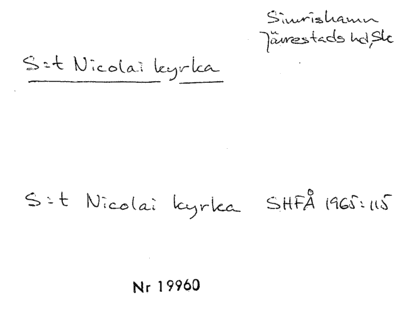 Simrishamn
Järrestads hd, Sk
S:t Nicolai kyrka
S:t Nicolai kyrka SHFÅ 1965:115
Nr 19960